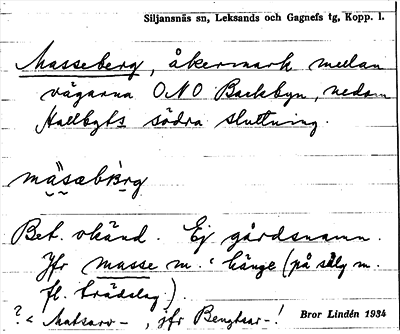 Siljansnäs sn, Leksands och Gagnefs tg, Kopp. l.
Masseberg, åkermark mellan
vägarna ONO Backbyn, nedom
Hallbyts södra sluttning.
Bet. okänd. Ej gårdsnamn.
Jfr masse m. 'hänge (på sälg m.
fl. trädslag).
?< Matsaro-, jfr Bengtsar-!
Bror Lindén 1934